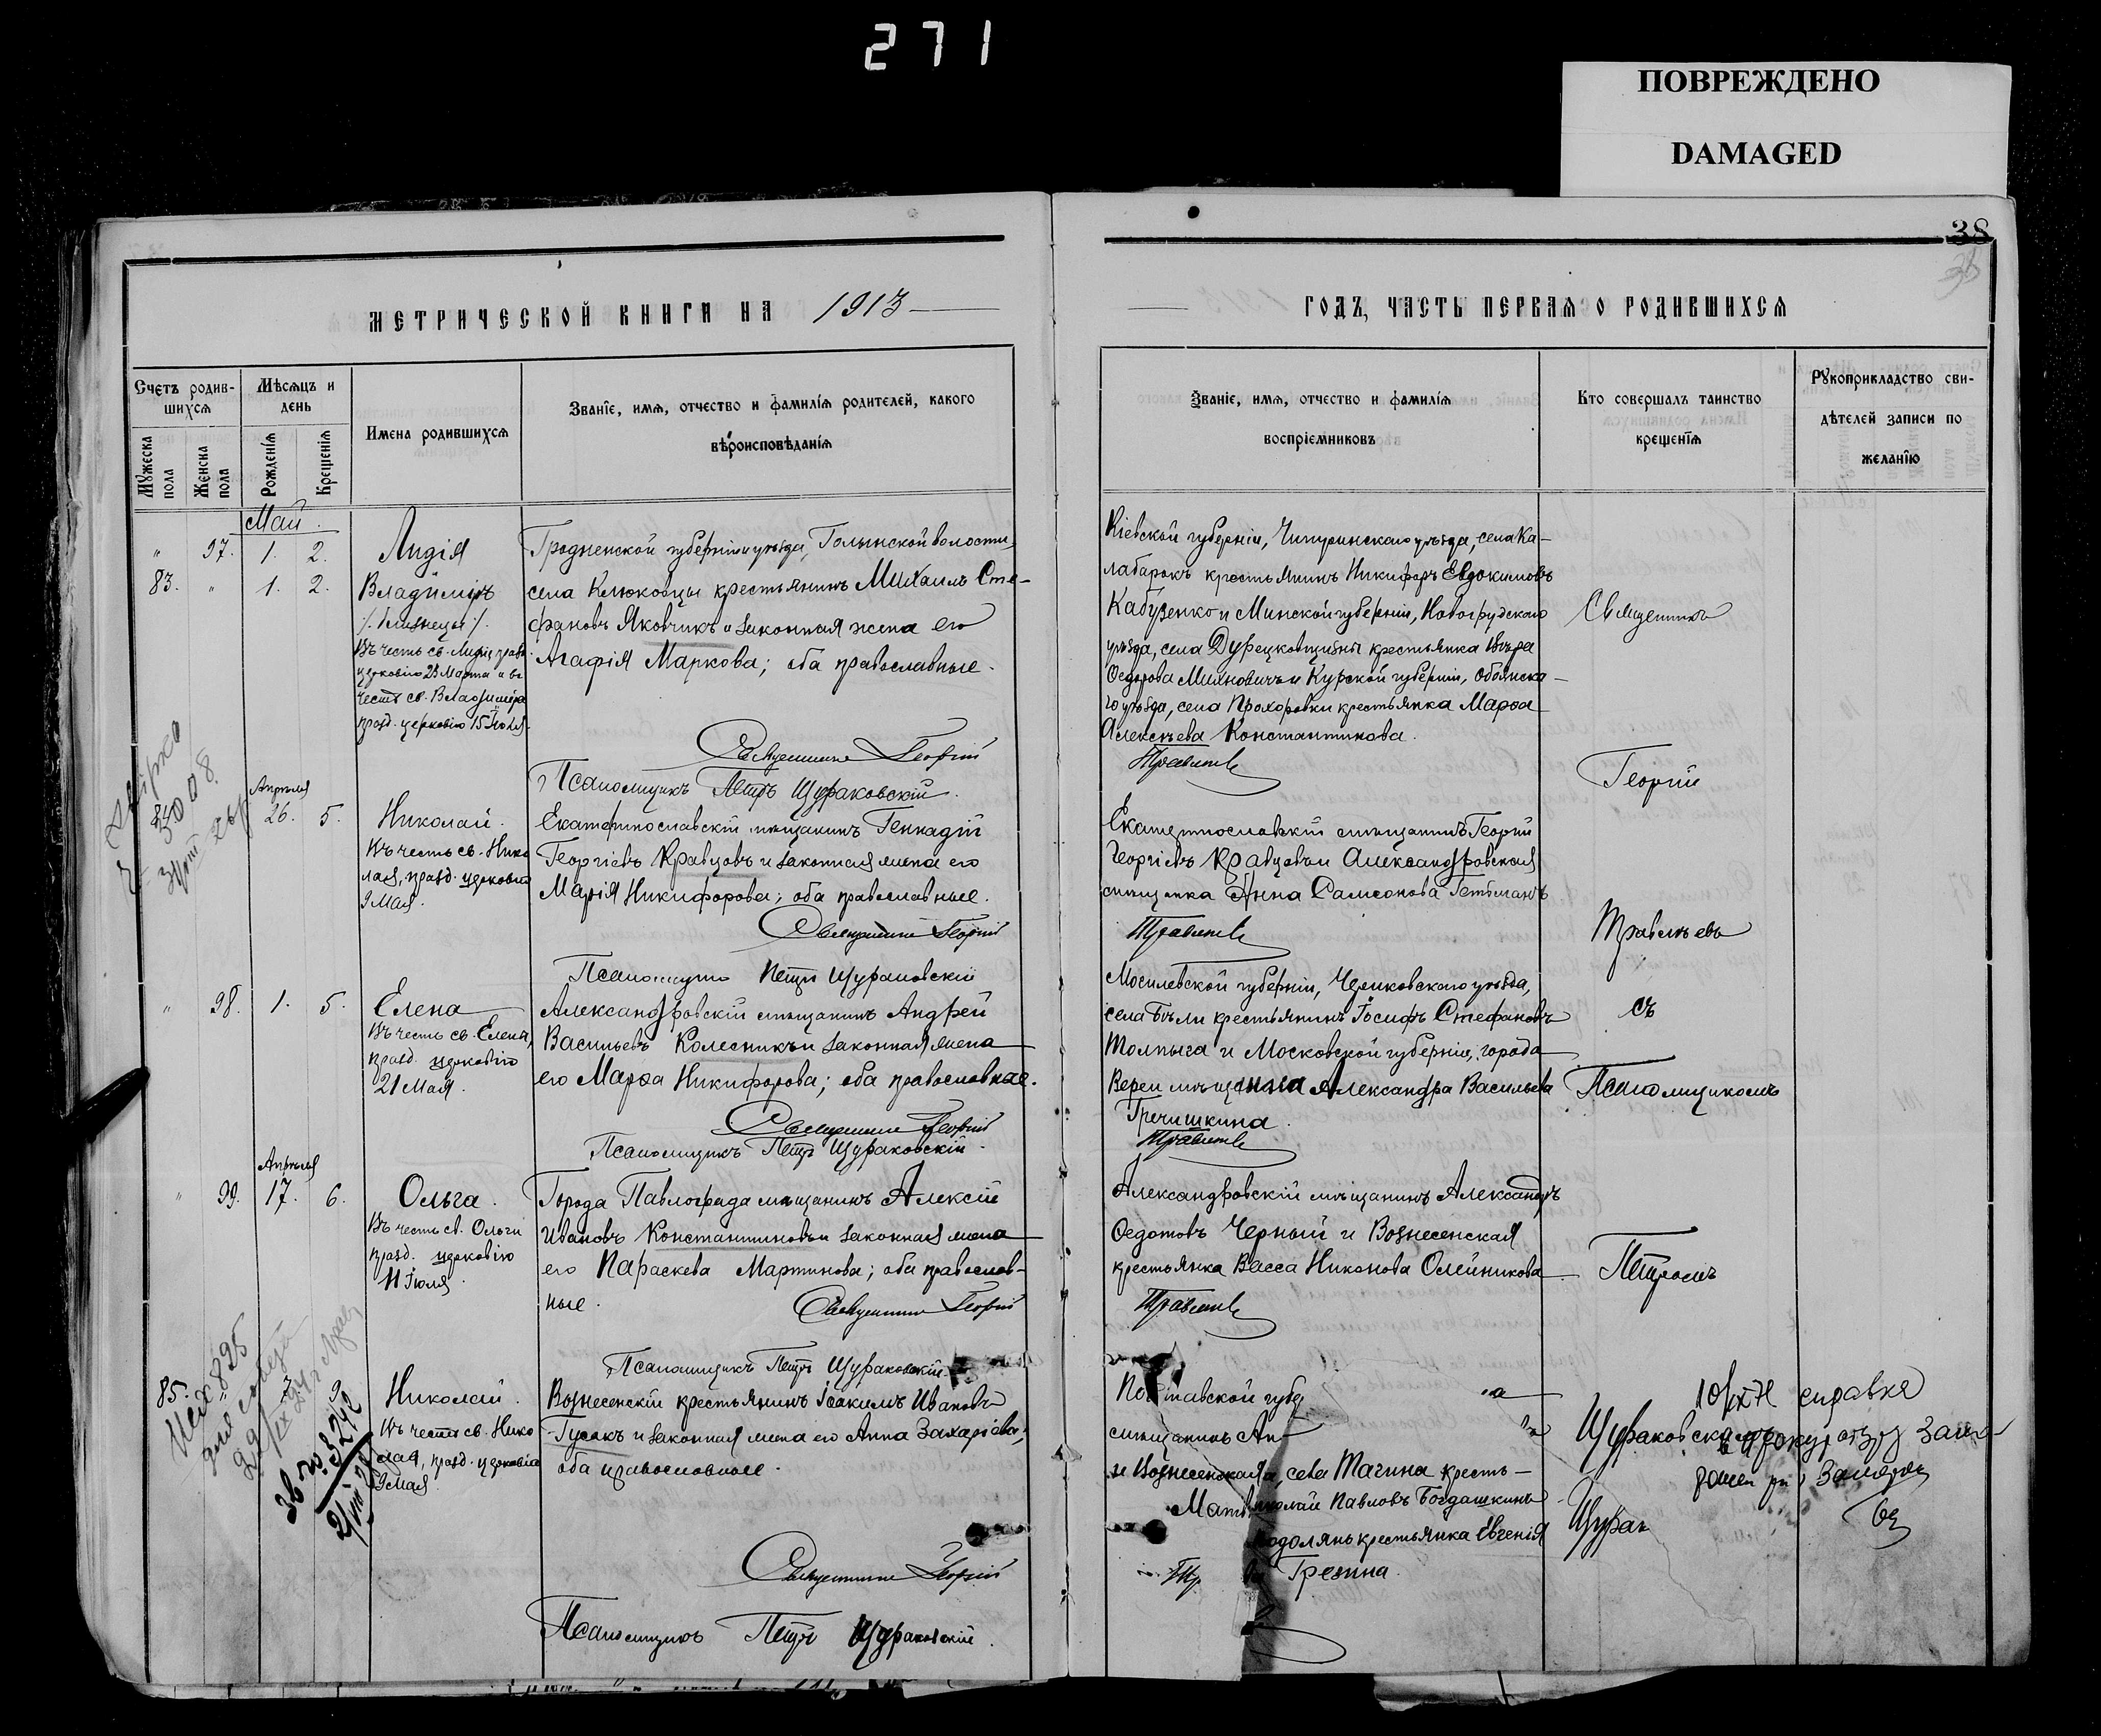 271
ПОВРЕЖДЕНО
DAMAGED
38
МЕТРИЧЕСКОЙ КНИГИ НА 1913
ГОДЪ, ЧАСТЬ ПЕРВАЯ О РОДИВШИХСЯ
Счетъ родив-
шихся
Мѣсяцъ и
день
Мужеска
пола
Женска
пола
Рожденія
Крещенія
Имена родившихся
Званіе, имя, отчество и фамилія родителей, какого
вѣроисповѣданія
Званіе, имя, отчество и фамилія
воспріемниковъ
Кто совершалъ таинство
крещенія
Рукоприкладство сви-
дѣтелей записи по
желанію
Май
" 97. 1. 2. Лидія
83. " 1. 2. Владиміръ
/. близнецы /.
Въ честь св. Лидіи празд.
церковію 23 Марта и въ
честь св. Владиміра
празд. церковію 15 Іюля.
Гродненской губерніи и уѣзда, Голынской волости,
села Клюковцы крестьянинъ Михаилъ Сте-
фановъ Яковчикъ и законная жена его
Агафія Маркова; оба православные.
Священникъ Георгій
Псаломщикъ Петръ Щураковскій.
Кіевской губерніи, Чигиринскаго уѣзда, села Ка-
лабарокъ крестьянинъ Никифоръ Евдокимовъ
Кабузенко и Минской губерніи, Новогрудскаго
уѣзда, села крестьянка Вѣра
Ѳедорова Михновичъ и Курской губерніи, Обоянска-
го уѣзда, села Прохоровки крестьянка Марѳа
Алексѣева Константинова.
Апрѣля
26. 5. Николай.
Въ честь св. Нико
лая, празд. церковію
9 Мая.
Екатеринославскій мѣщанинъ Геннадій
Георгіевъ Кравцовъ и законная жена его
Марія Никифорова; оба православные.
Священникъ Георгій
Псаломщикъ Петръ Щураковскій
Екатеринославскій мѣщанинъ Георгій
Георгіевъ Кравцовъ и Александровская
мѣщанка Анна Самсонова Гетьманъ
" 98. 1. 5. Елена
Въ честь св. Елены,
празд. церковію
21 Мая.
Александровскій мѣщанинъ Андрей
Васильевъ Колесникъ и законная жена
его Марѳа Никифорова; оба православные.
Священникъ Георгій
Псаломщикъ Петръ Щураковскій.
Могилевской губерніи, Чериковскаго уѣзда,
села Бѣли крестьянинъ Іосифъ Стефановъ
Толпыга и Московской губерніи, города
Вереи мѣщанка Александра Васильева
Гречишкина.
Апрѣля
" 99. 17. 6. Ольга.
Въ честь св. Ольги
празд. церковію
11 Іюля.
Города Павлограда мѣщанинъ Алексій
Ивановъ Константиновъ и законная жена
его Параскева Мартинова; оба православ-
ные. Священникъ Георгій
Псаломщикъ Петръ Щураковскій
Александровскій мѣщанинъ Александръ
Ѳедотовъ Черный и Вознесенская
крестьянка Васса Никонова Олейникова
85. Николай.
Въ честь св. Нико
лая, празд. церковію
9 Мая
Вознесенскій крестьянинъ Іоакимъ Ивановъ
Гусакъ и законная жена его Анна Захаріева;
оба православные.
Священникъ Георгій
Псаломщикъ Петръ Щураковскій.
Полтавской губе
мѣщанинъ Ан
и Вознесенская
кресть-
Николай Павловъ Богдашкинъ
крестьянка Евгенія
Грезина.
Священникъ
Георгій
Травлѣевъ
съ
Псаломщикомъ
Петромъ
Щураковскимъ
справка